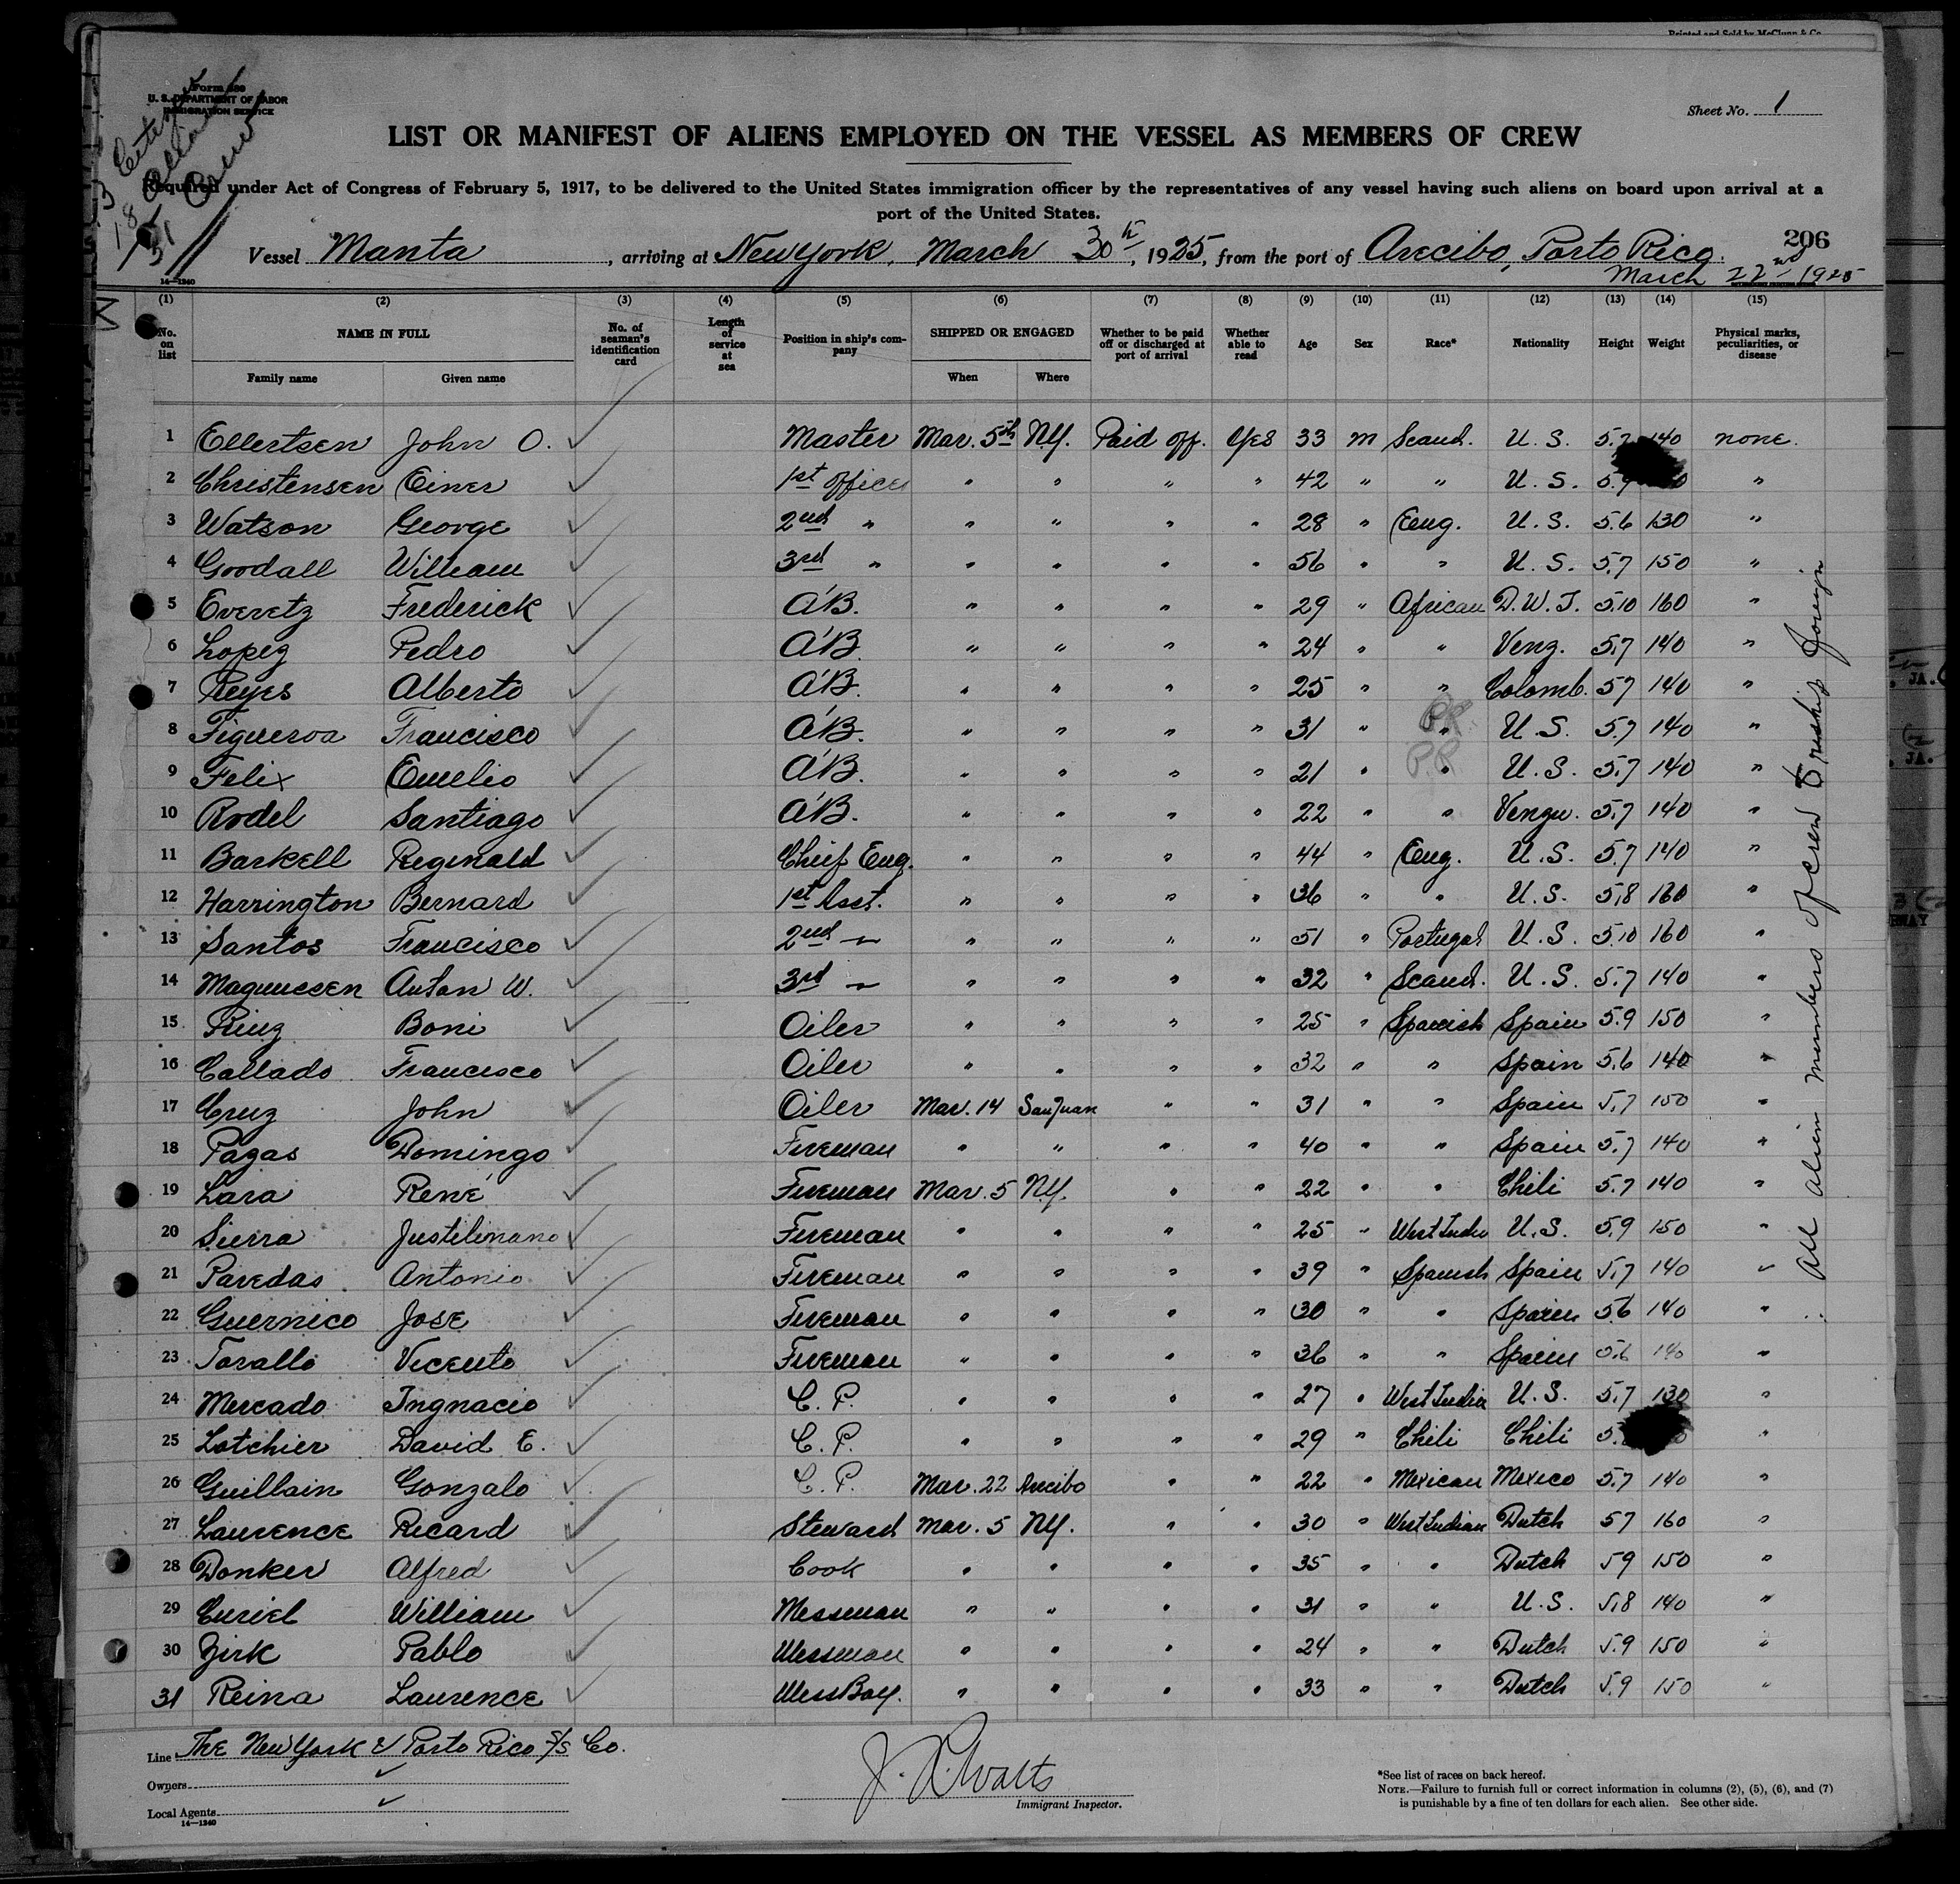 Printed and Sold by McClung & Co
Form 689
U. S. DEPARTMENT OF LABOR
IMMIGRATION SERVICE
Sheet No. 1
LIST OR MANIFEST OF ALIENS EMPLOYED ON THE VESSEL AS MEMBERS OF CREW
Required under Act of Congress of February 5, 1917, to be delivered to the United States immigration officer by the representatives of any vessel having such aliens on board upon arrival at a
port of the United States.
206
Vessel Manta, arriving at New York, March 30th, 1925, from the port of Arecibo, Porto Rico.
March 22nd 1925
14—1240
(1) (2) (3) (4) (5) (6) (7) (8) (9) (10) (11) (12) (13) (14) (15)
No. on list NAME IN FULL Family name Given name No. of seaman's identification card Length of service at sea Position in ship's company SHIPPED OR ENGAGED When Where Whether to be paid off or discharged at port of arrival Whether able to read Age Sex Race* Nationality Height Weight Physical marks, peculiarities, or disease
1 Ellertsen John O. Master Mar. 5th N.Y. Paid off. Yes 33 m Scand. U. S. 5.7 140 none.
2 Christensen Einer 1st officer " " " " 42 " " U. S. 5.9 "
3 Watson George 2nd " " " " " 28 " Eng. U. S. 5.6 130 "
4 Goodall William 3rd " " " " " 56 " " U. S. 5.7 150 "
5 Everetz Frederick A.B. " " " " 29 " African D. W. I. 5.10 160 "
6 Lopez Pedro A.B. " " " " 24 " " Venz. 5.7 140 "
7 Reyes Alberto A.B. " " " " 25 " " Colomb. 5.7 140 "
8 Figueroa Francisco A.B. " " " " 31 " " P.R. U. S. 5.7 140 "
9 Felix Emelio A.B. " " " " 21 " " P.R. U. S. 5.7 140 "
10 Rodel Santiago A.B. " " " " 22 " " Venzu. 5.7 140 "
11 Barkell Reginald Chief Eng. " " " " 44 " Eng. U. S. 5.7 140 "
12 Harrington Bernard 1st Asst. " " " " 36 " " U. S. 5.8 160 "
13 Santos Francisco 2nd " " " " " 51 " Portugal U. S. 5.10 160 "
14 Magnussen Anton W. 3rd " " " " " 32 " Scand. U. S. 5.7 140 "
15 Boni Oiler " " " " 25 " Spanish Spain 5.9 150 "
16 Callado Francisco Oiler " " " " 32 " " Spain 5.6 140 "
17 Cruz John Oiler Mar. 14 San Juan " " 31 " " Spain 5.7 150 "
18 Pazas Domingo Fireman " " " " 40 " " Spain 5.7 140 "
19 Lara René Fireman Mar. 5 N.Y. " " 22 " " Chili 5.7 140 "
20 Sierra Justilimano Fireman " " " " 25 " West Indie U. S. 5.9 150 "
21 Paredas Antonio Fireman " " " " 39 " Spanish Spain 5.7 140 "
22 Guernico Jose Fireman " " " " 30 " " Spain 5.6 140 "
23 Torallo Vicento Fireman " " " " 36 " " Spain 5.6 140 "
24 Mercado Ingnacio C. P. " " " " 27 " West India U. S. 5.7 130 "
25 Lotchier David E. C. P. " " " " 29 " Chili Chili 5. "
26 Guillain Gonzalo C. P. Mar. 22 Arecibo " " 22 " Mexican Mexico 5.7 140 "
27 Laurence Ricard Steward Mar. 5 N.Y. " " 30 " West Indian Dutch 5 7 160 "
28 Donker Alfred Cook " " " " 35 " " Dutch 5 9 150 "
29 Curiel William Messman " " " " 31 " " U. S. 5.8 140 "
30 Zirk Pablo Messman " " " " 24 " " Dutch 5.9 150 "
31 Reina Laurence Mess Boy. " " " " 33 " " Dutch 5.9 150 "
All alien members of crew foreign
Line The New York & Porto Rico S/S Co.
Owners
Local Agents
14—1240
J. Watts
Immigrant Inspector.
*See list of races on back hereof.
NOTE.—Failure to furnish full or correct information in columns (2), (5), (6), and (7)
is punishable by a fine of ten dollars for each alien. See other side.